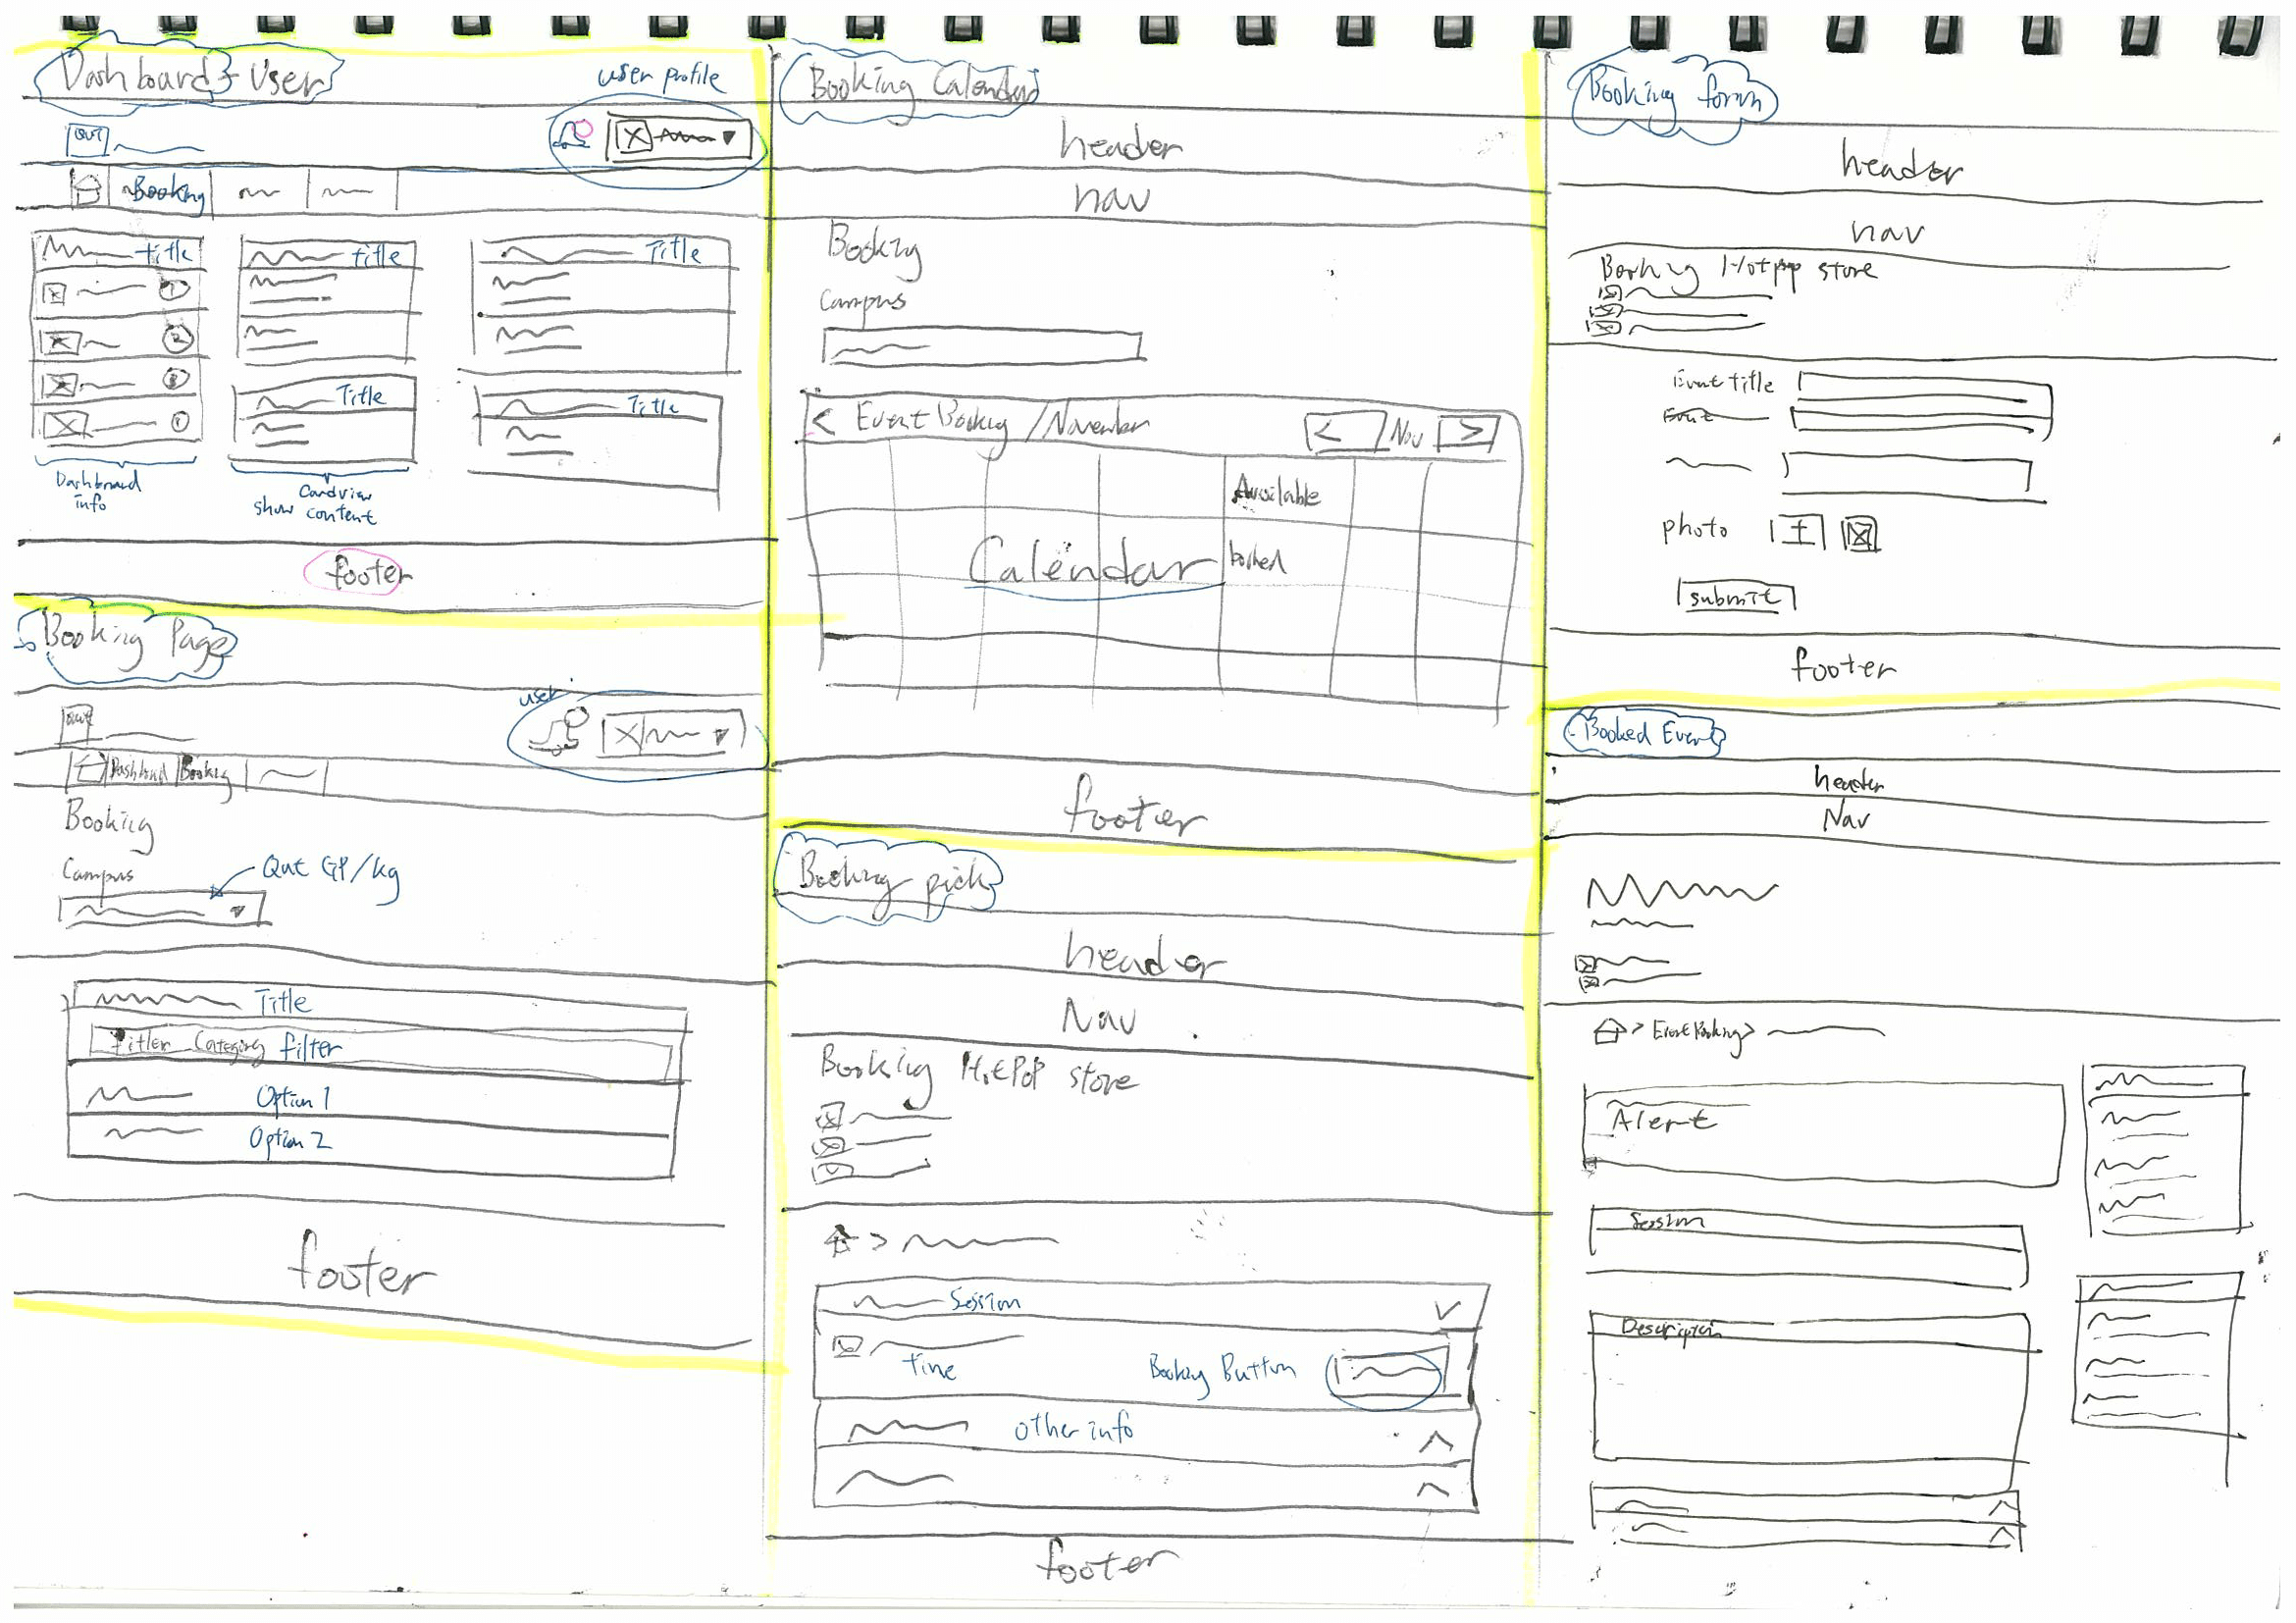 Dashboard - User
user profile
QUT
Booking
title
title
Title
1
2
3
1
Title
Title
Dashboard
info
Cardview
show content
footer
Booking Page
user
QUT
Dashboard
Booking
Booking
Campus
Qut GP/kg
Title
Category filter
Option 1
Option 2
footer
Booking Calendar
header
nav
Booking
Campus
< Event Booking / November
< Nov >
Available
Calendar
booked
footer
Booking pick
header
Nav
Booking HotPOP store
>
Session
time
Booking Button
other info
footer
Booking form
header
nav
Booking Hotpop store
Event title
Event
photo
+
submit
footer
Booked Event
header
Nav
> Event Booking >
Alert
Session
Description